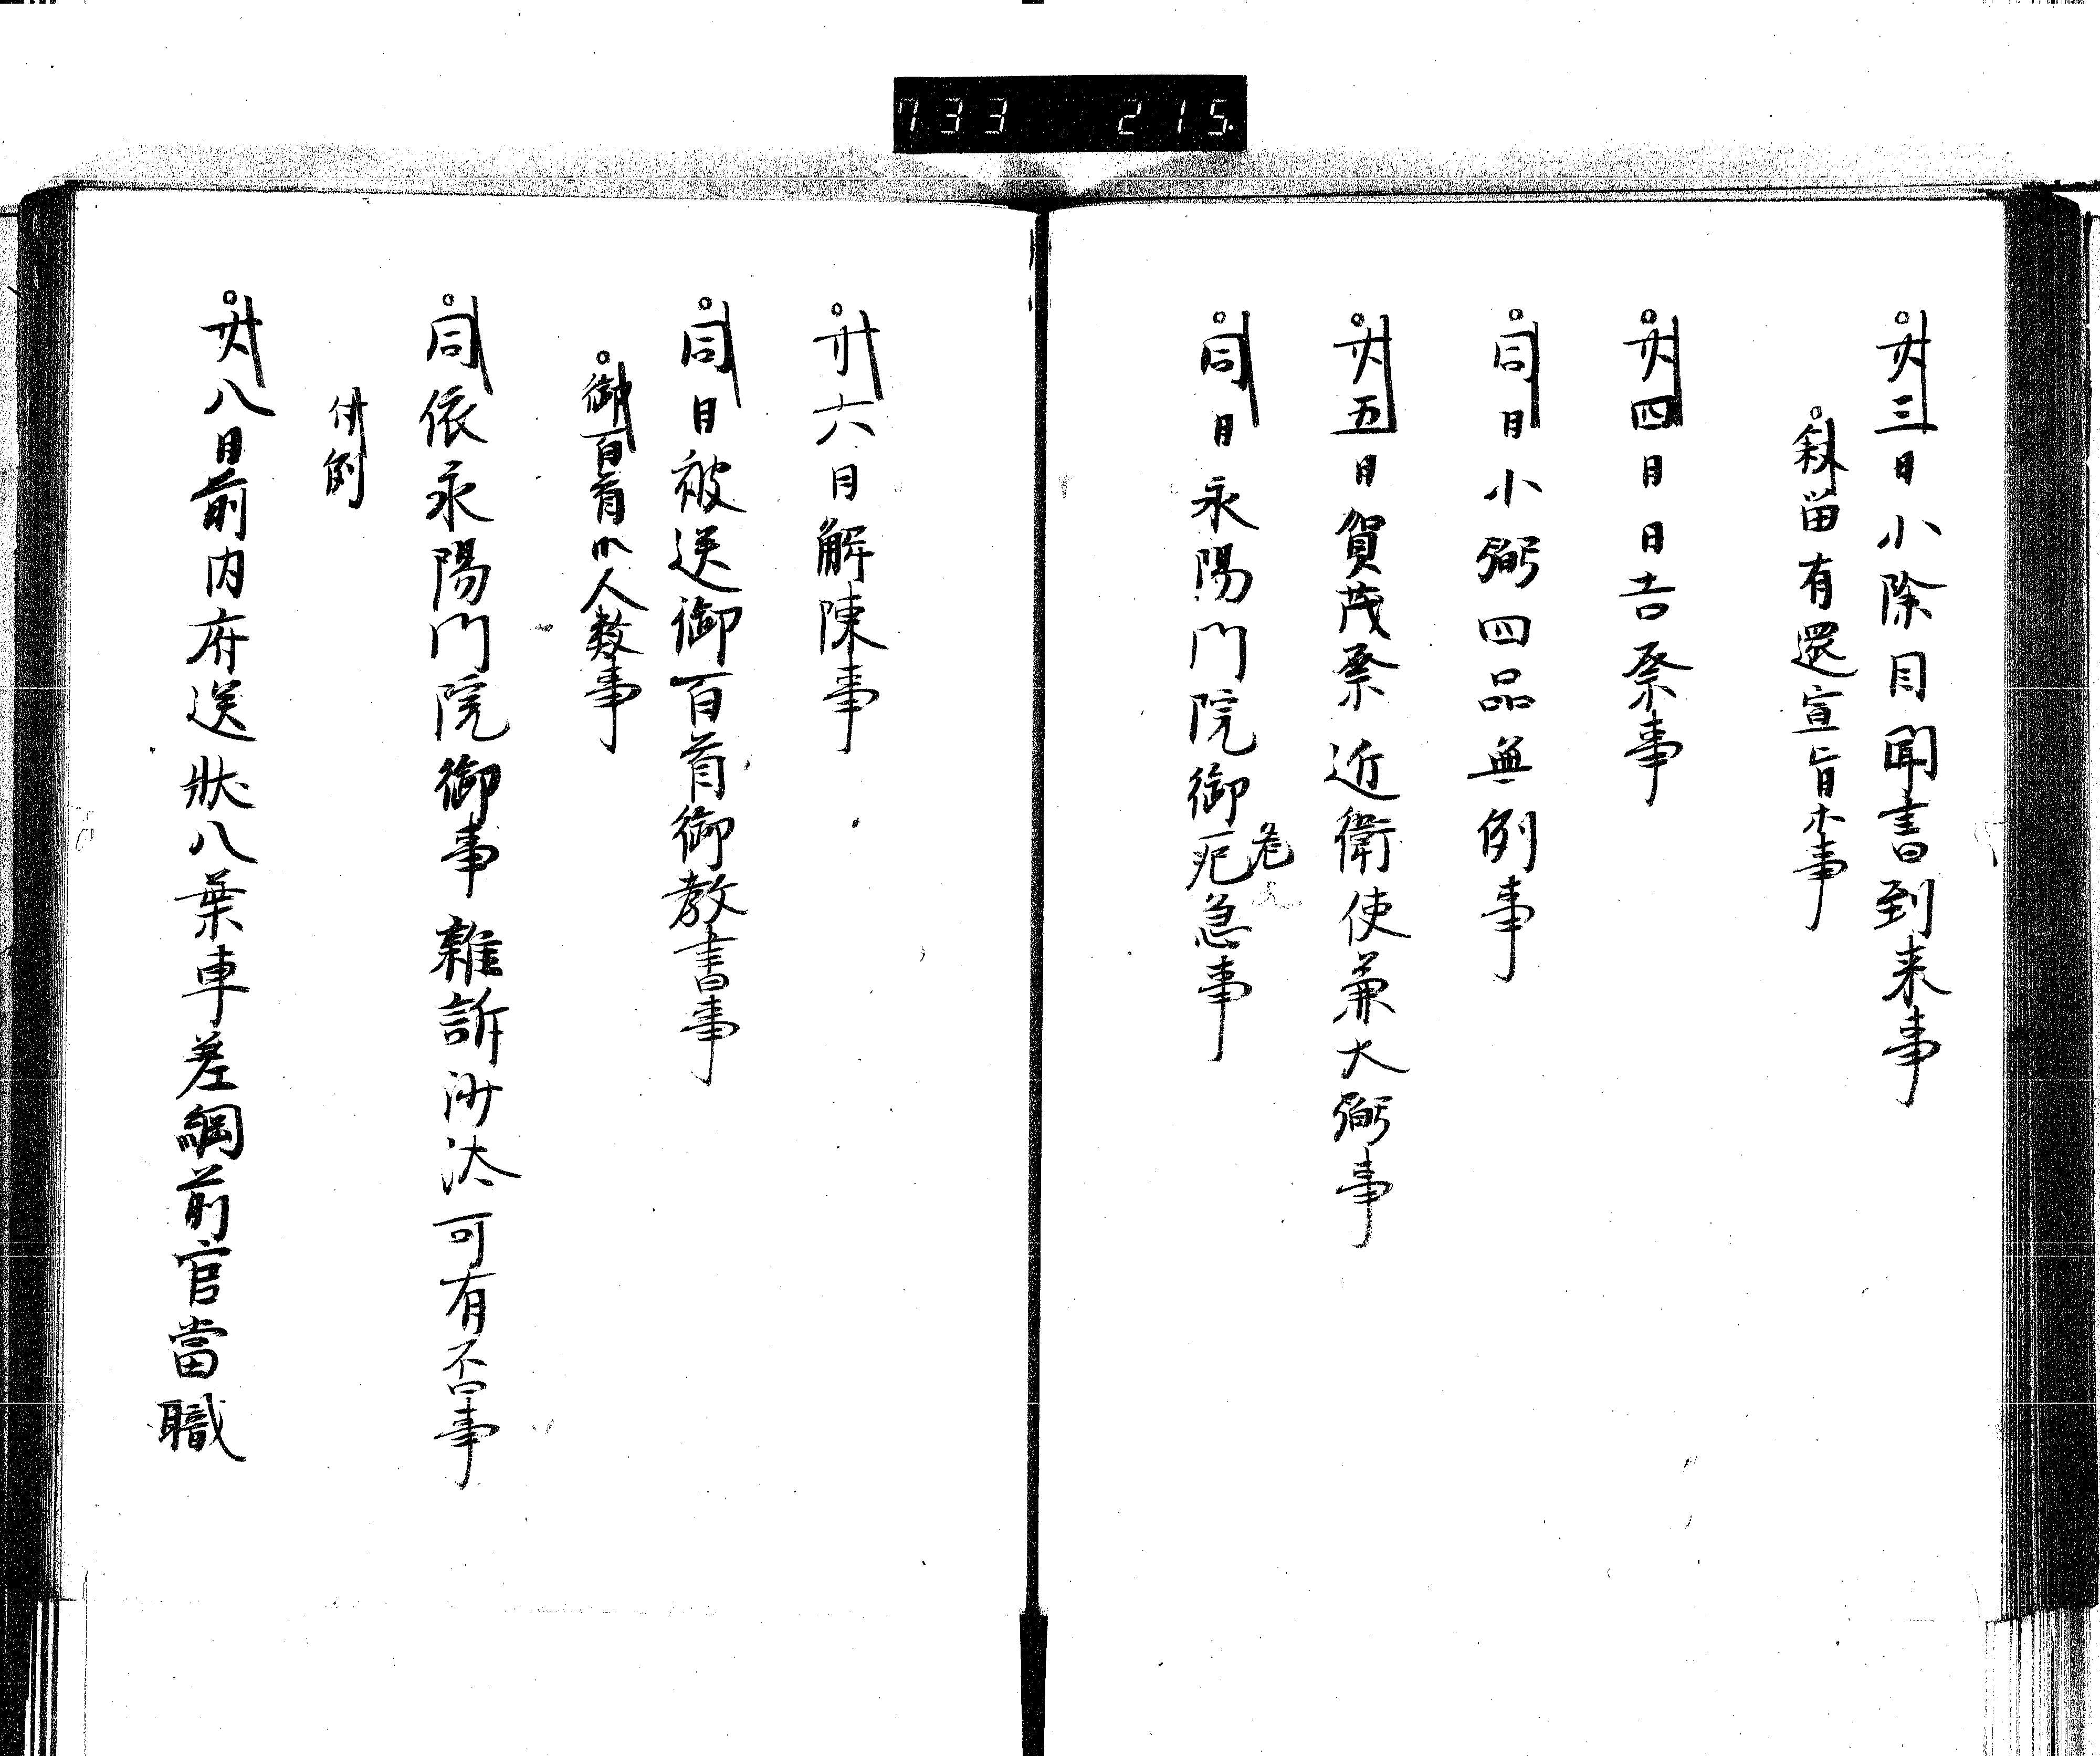 733 215
廿三日小除目聞書到来事
叙留有還宣旨木事
廿四日日吉祭事
同日小弼四品無例事
廿五日賀茂祭近衛使兼大弼事
同日永陽門院御危急事
危
廿六日解陳事
同日被送御百首御教書事
御百首人数事
同依永陽門院御事雑訴沙汰可有否事
併例
廿八日前内府送状八葉車差綱前官當職